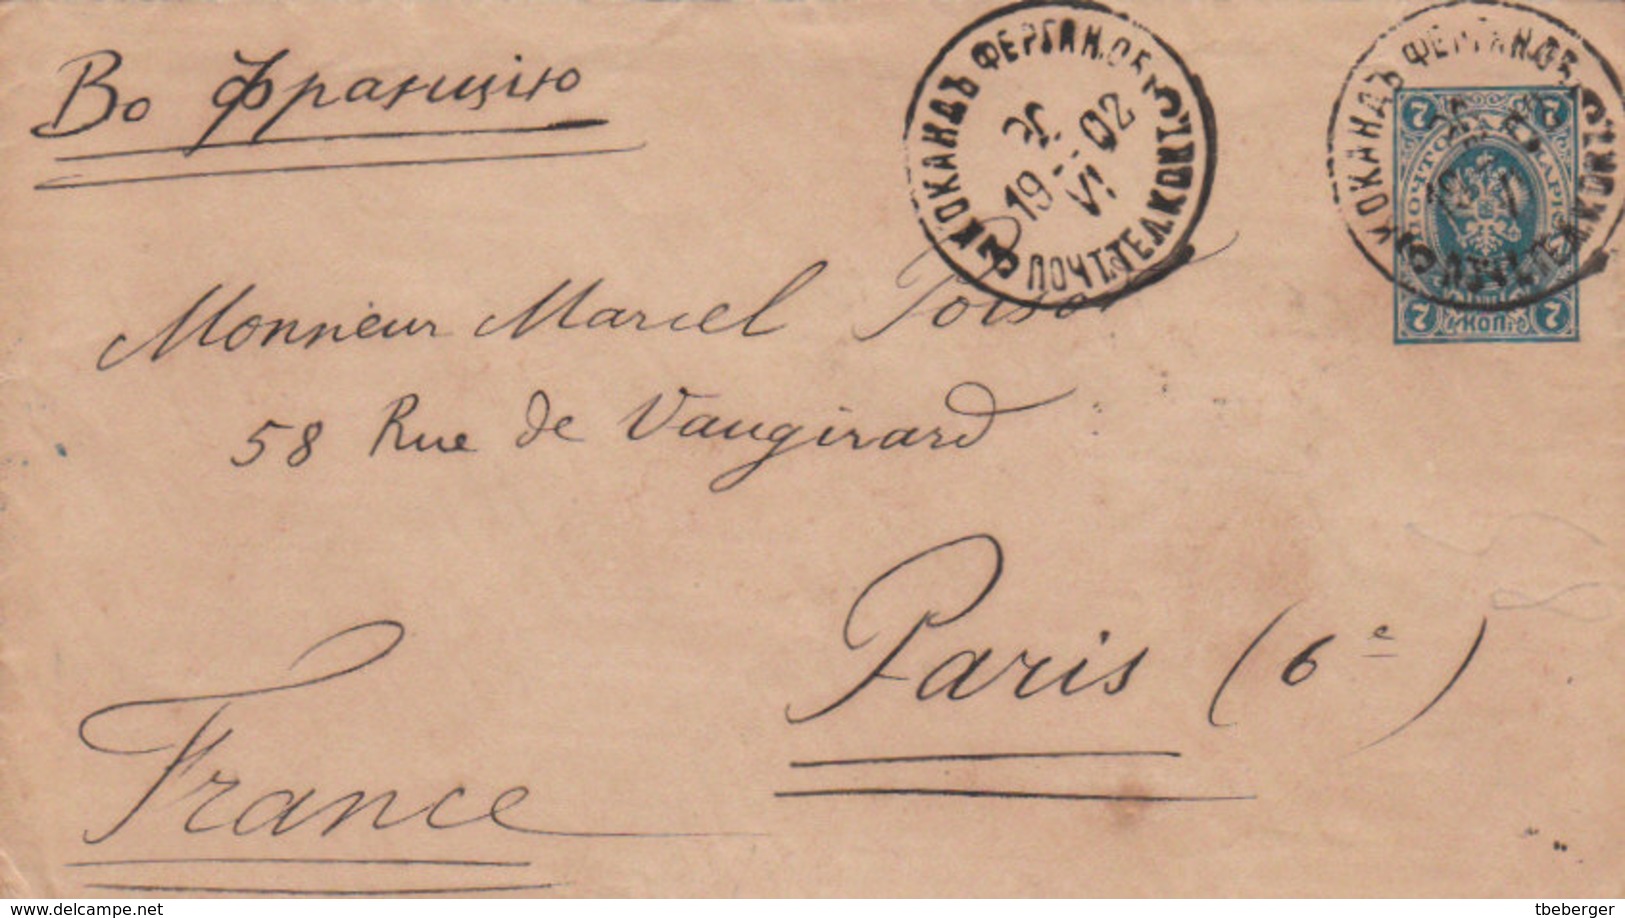 Во Францію
КОКАНДЪ ФЕРГАН. ОБ.
19 02
VI
3 ПОЧТ. ТЕЛ. КОНТ. 3
КОКАНДЪ ФЕРГАН. ОБ.
19
ПОЧТ. ТЕЛ. КОНТ.
7 7
ПОЧТОВАЯ МАРКА
7 КОП. 7
Monsieur Marcel
58 Rue de Vaugirard
Paris (6e)
France
www.delcampe.net
tbeberger